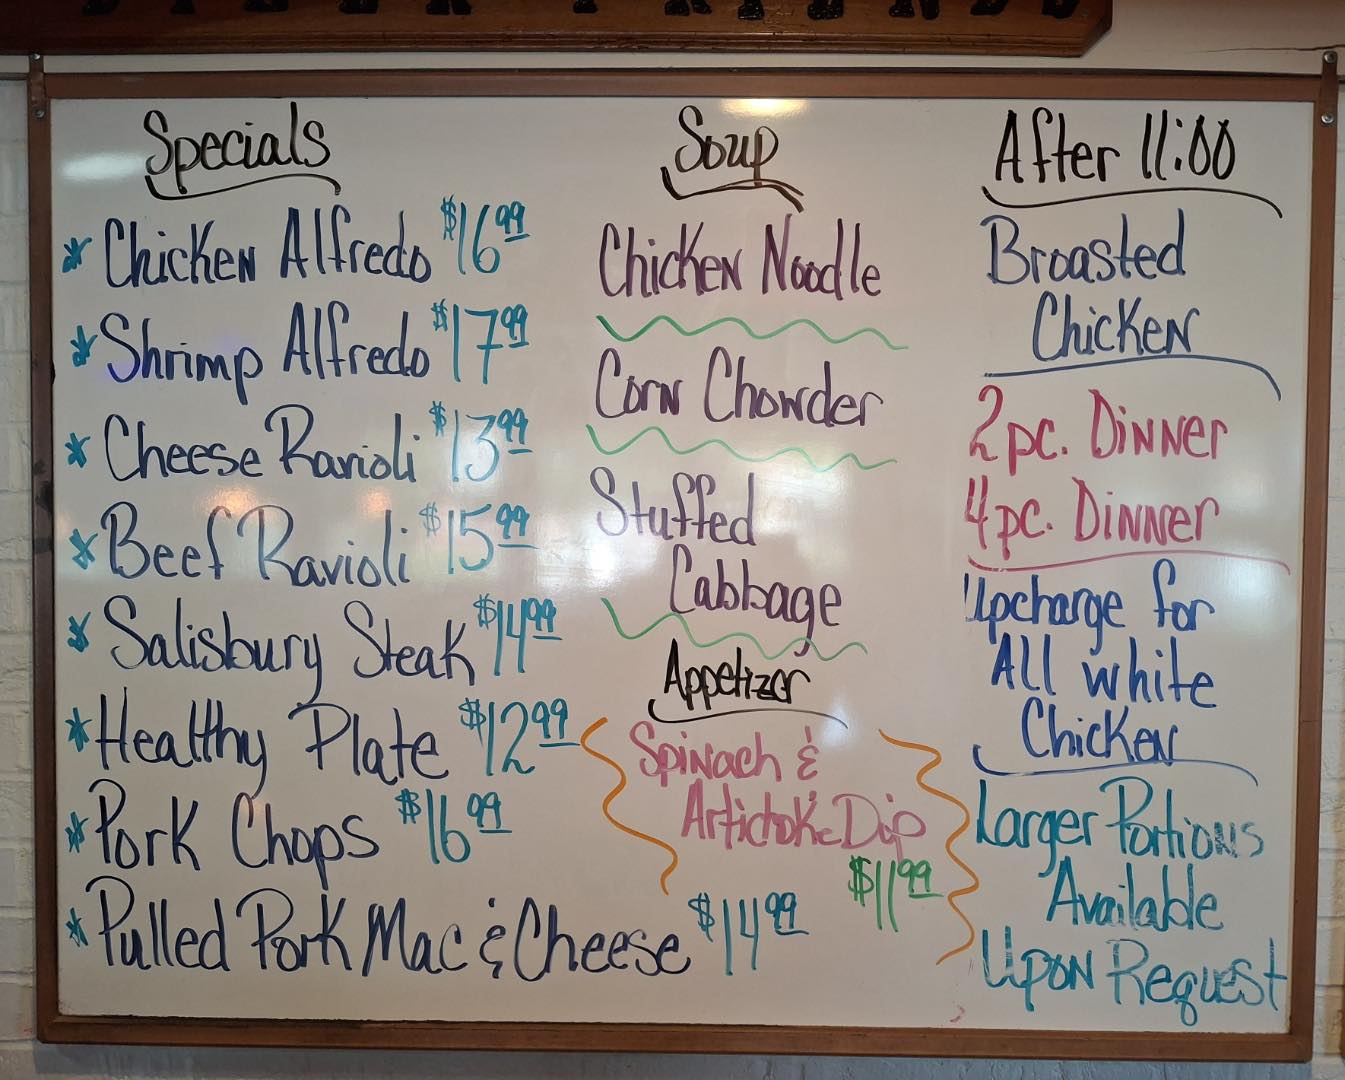 Specials
* Chicken Alfredo $16.99
* Shrimp Alfredo $17.99
* Cheese Ravioli $13.99
* Beef Ravioli $15.99
* Salisbury Steak $14.99
* Healthy Plate $12.99
* Pork Chops $16.99
* Pulled Pork Mac & Cheese $14.99
Soup
Chicken Noodle
Corn Chowder
Stuffed
Cabbage
Appetizer
Spinach &
Artichoke Dip
$11.99
After 11:00
Broasted
Chicken
2pc. Dinner
4pc. Dinner
Upcharge for
All white
Chicken
Larger Portions
Available
Upon Request